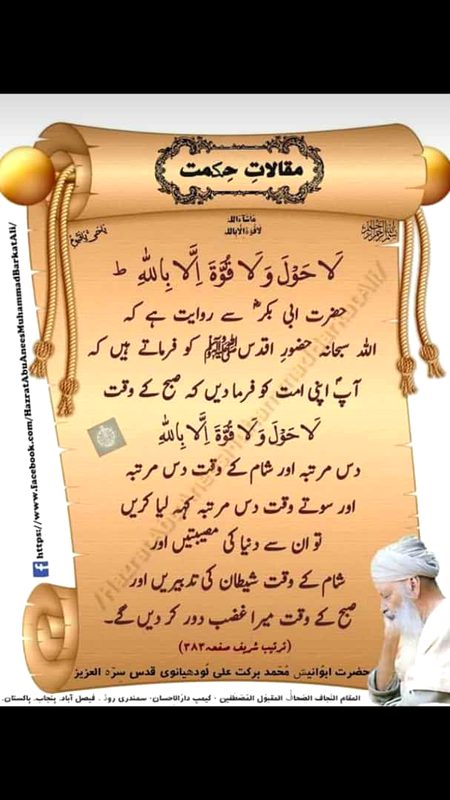 مقالاتِ حِکمت
ماشآءاللہ
لاقوۃالاباللہ
یاحی یاقیوم
لَا حَوْلَ وَلَا قُوَّةَ اِلَّا بِاللهِ ط
حضرت ابی بکرؓ سے روایت ہے کہ
اللہ سبحانہٗ حضورِ اقدسﷺ کو فرماتے ہیں کہ
آپؐ اپنی امت کو فرما دیں کہ صبح کے وقت
لَا حَوْلَ وَلَا قُوَّةَ اِلَّا بِاللهِ
دس مرتبہ اور شام کے وقت دس مرتبہ
اور سوتے وقت دس مرتبہ کہہ لیا کریں
تو ان سے دنیا کی مصیبتیں اور
شام کے وقت شیطان کی تدبیریں اور
صبح کے وقت میرا غضب دور کر دیں گے۔
(ترتیب شریف صفحہ ۳۸۳)
حضرت ابوانیسؒ مُحَمد برکت علی لُودھیانوی قدس سرّہ العزیز
المقام النجاف الصحاف المقبول المصطفین - کیمپ دارالاحسان - سمندری روڈ - فیصل آباد پنجاب، پاکستان۔
https://www.facebook.com/HazratAbuAneesMuhammadBarkatAli/